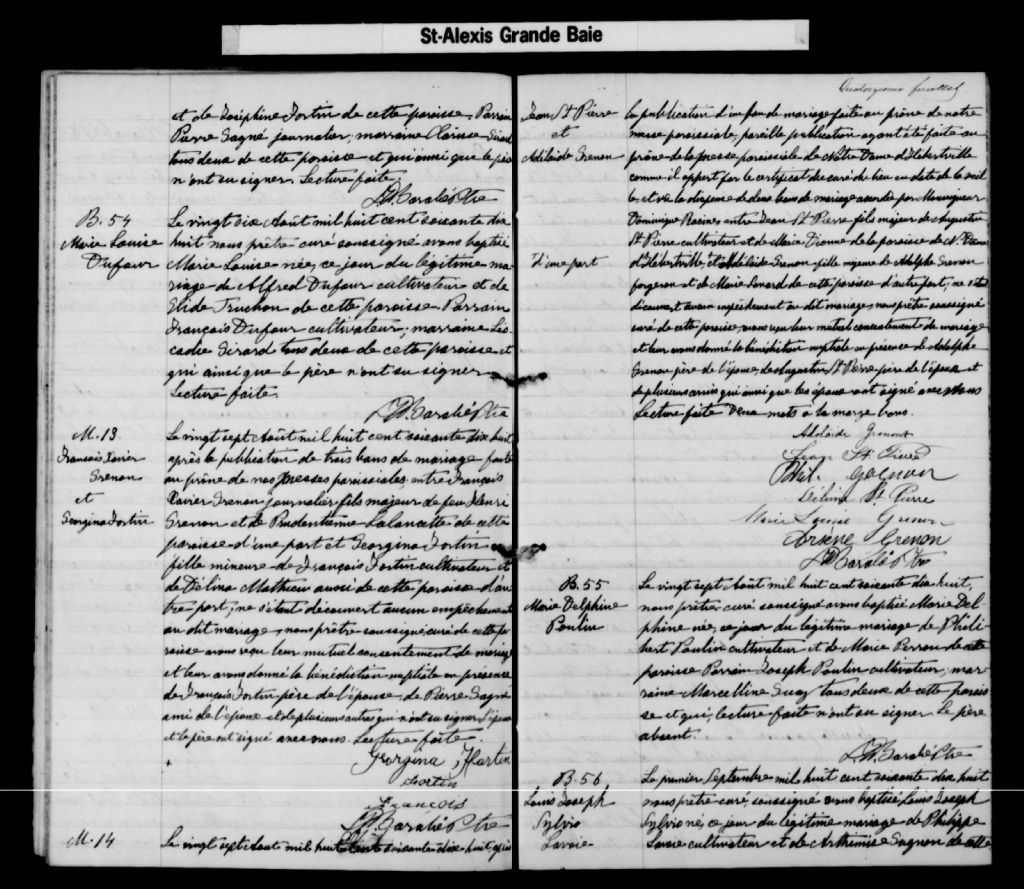 St-Alexis Grande Baie
et de Joséphine Fortin de cette paroisse. Parrain
Pierre Gagné journalier, marraine Clarisse Girard
tous deux de cette paroisse et qui ainsi que le père
n'ont su signer. Lecture faite.
Ptre
B. 54
Marie Louise
Dufour
Le vingt six Août mil huit cent soixante dix
huit nous prêtre-curé soussigné avons baptisé
Marie Louise née, ce jour du légitime ma-
riage de Alfred Dufour cultivateur et de
Elide Truchon de cette paroisse Parrain
François Dufour cultivateur, marraine Léo-
cadie Girard tous deux de cette paroisse et
qui ainsi que le père n'ont su signer
Lecture faite.
Ptre
M. 13
François Xavier
Grenon
et
Georgina Fortin
Le vingt sept Août mil huit cent soixante dix huit
après la publication de trois bans de mariage faite
au prône de nos Messes paroissiales entre François
Xavier Grenon journalier fils majeur de feu Henri
Grenon et de Prudentienne Lalancette de cette
paroisse d'une part et Georgina Fortin
fille mineure de François Fortin cultivateur et
de Délina Mathieu aussi de cette paroisse d'au
tre part; ne s'étant découvert aucun empêchement
au dit mariage, nous prêtre soussigné curé de cette pa
roisse avons reçu leur mutuel consentement de mariage
et leur avons donné la bénédiction nuptiale en présence
de François Fortin père de l'épouse, de Pierre Gagné
ami de l'époux et de plusieurs autres qui n'ont su signer. L'épouse
et le père ont signé avec nous. Lecture faite.
Georgina
Fortin
François
Ptre
M. 14
Le vingt sept Août mil huit cent soixante dix huit, après
feuillet
Jean St Pierre
et
Adélaïde Grenon
la publication d'un ban de mariage faite au prône de notre
messe paroissiale, pareille publication ayant été faite au
prône de la Messe paroissiale de Notre Dame d'Hébertville
comme il appert par le certificat du curé du lieu en date de la veil
le, et vu la dispense de deux bans de mariage accordée par Monseigneur
Dominique Racine, entre Jean St Pierre fils majeur de Augustin
St Pierre cultivateur et de Marie Dionne de la paroisse de N. Dame
d'une part
d'Hébertville, et Adélaïde Grenon fille mineure de Adolphe Grenon
forgeron et de Marie Simard de cette paroisse d'autre part; ne s'étant
découvert aucun empêchement au dit mariage, nous prêtre soussigné
curé de cette paroisse, avons reçu leur mutuel consentement de mariage
et leur avons donné la bénédiction nuptiale en présence de Adolphe
Grenon père de l'épouse, de Augustin St Pierre père de l'époux et
de plusieurs amis qui ainsi que les époux ont signé avec Nous
Lecture faite. Deux mots à la marge bons.
Adelaide Grenont
Jean St Pierre
Gagnon
St Pierre
Marie Louise Grenon
Arsène Grenon
Ptre
B. 55
Marie Delphine
Poulin
Le vingt sept Août mil huit cent soixante dix huit,
nous prêtre-curé soussigné avons baptisé Marie Del-
phine née, ce jour du légitime mariage de Phili-
bert Poulin cultivateur et de Marie Perron de cette
paroisse Parrain Joseph Poulin cultivateur, mar-
raine Marcelline Guay tous deux de cette parois
se et qui, lecture faite n'ont su signer. Le père
absent.
Ptre
B. 56
Louis Joseph
Sylvio
Lavoie
Le premier Septembre mil huit cent soixante dix huit
nous prêtre-curé, soussigné avons baptisé Louis Joseph
Sylvio né, ce jour du légitime mariage de Philippe
Lavoie cultivateur et de Arthémise Gagnon de cette